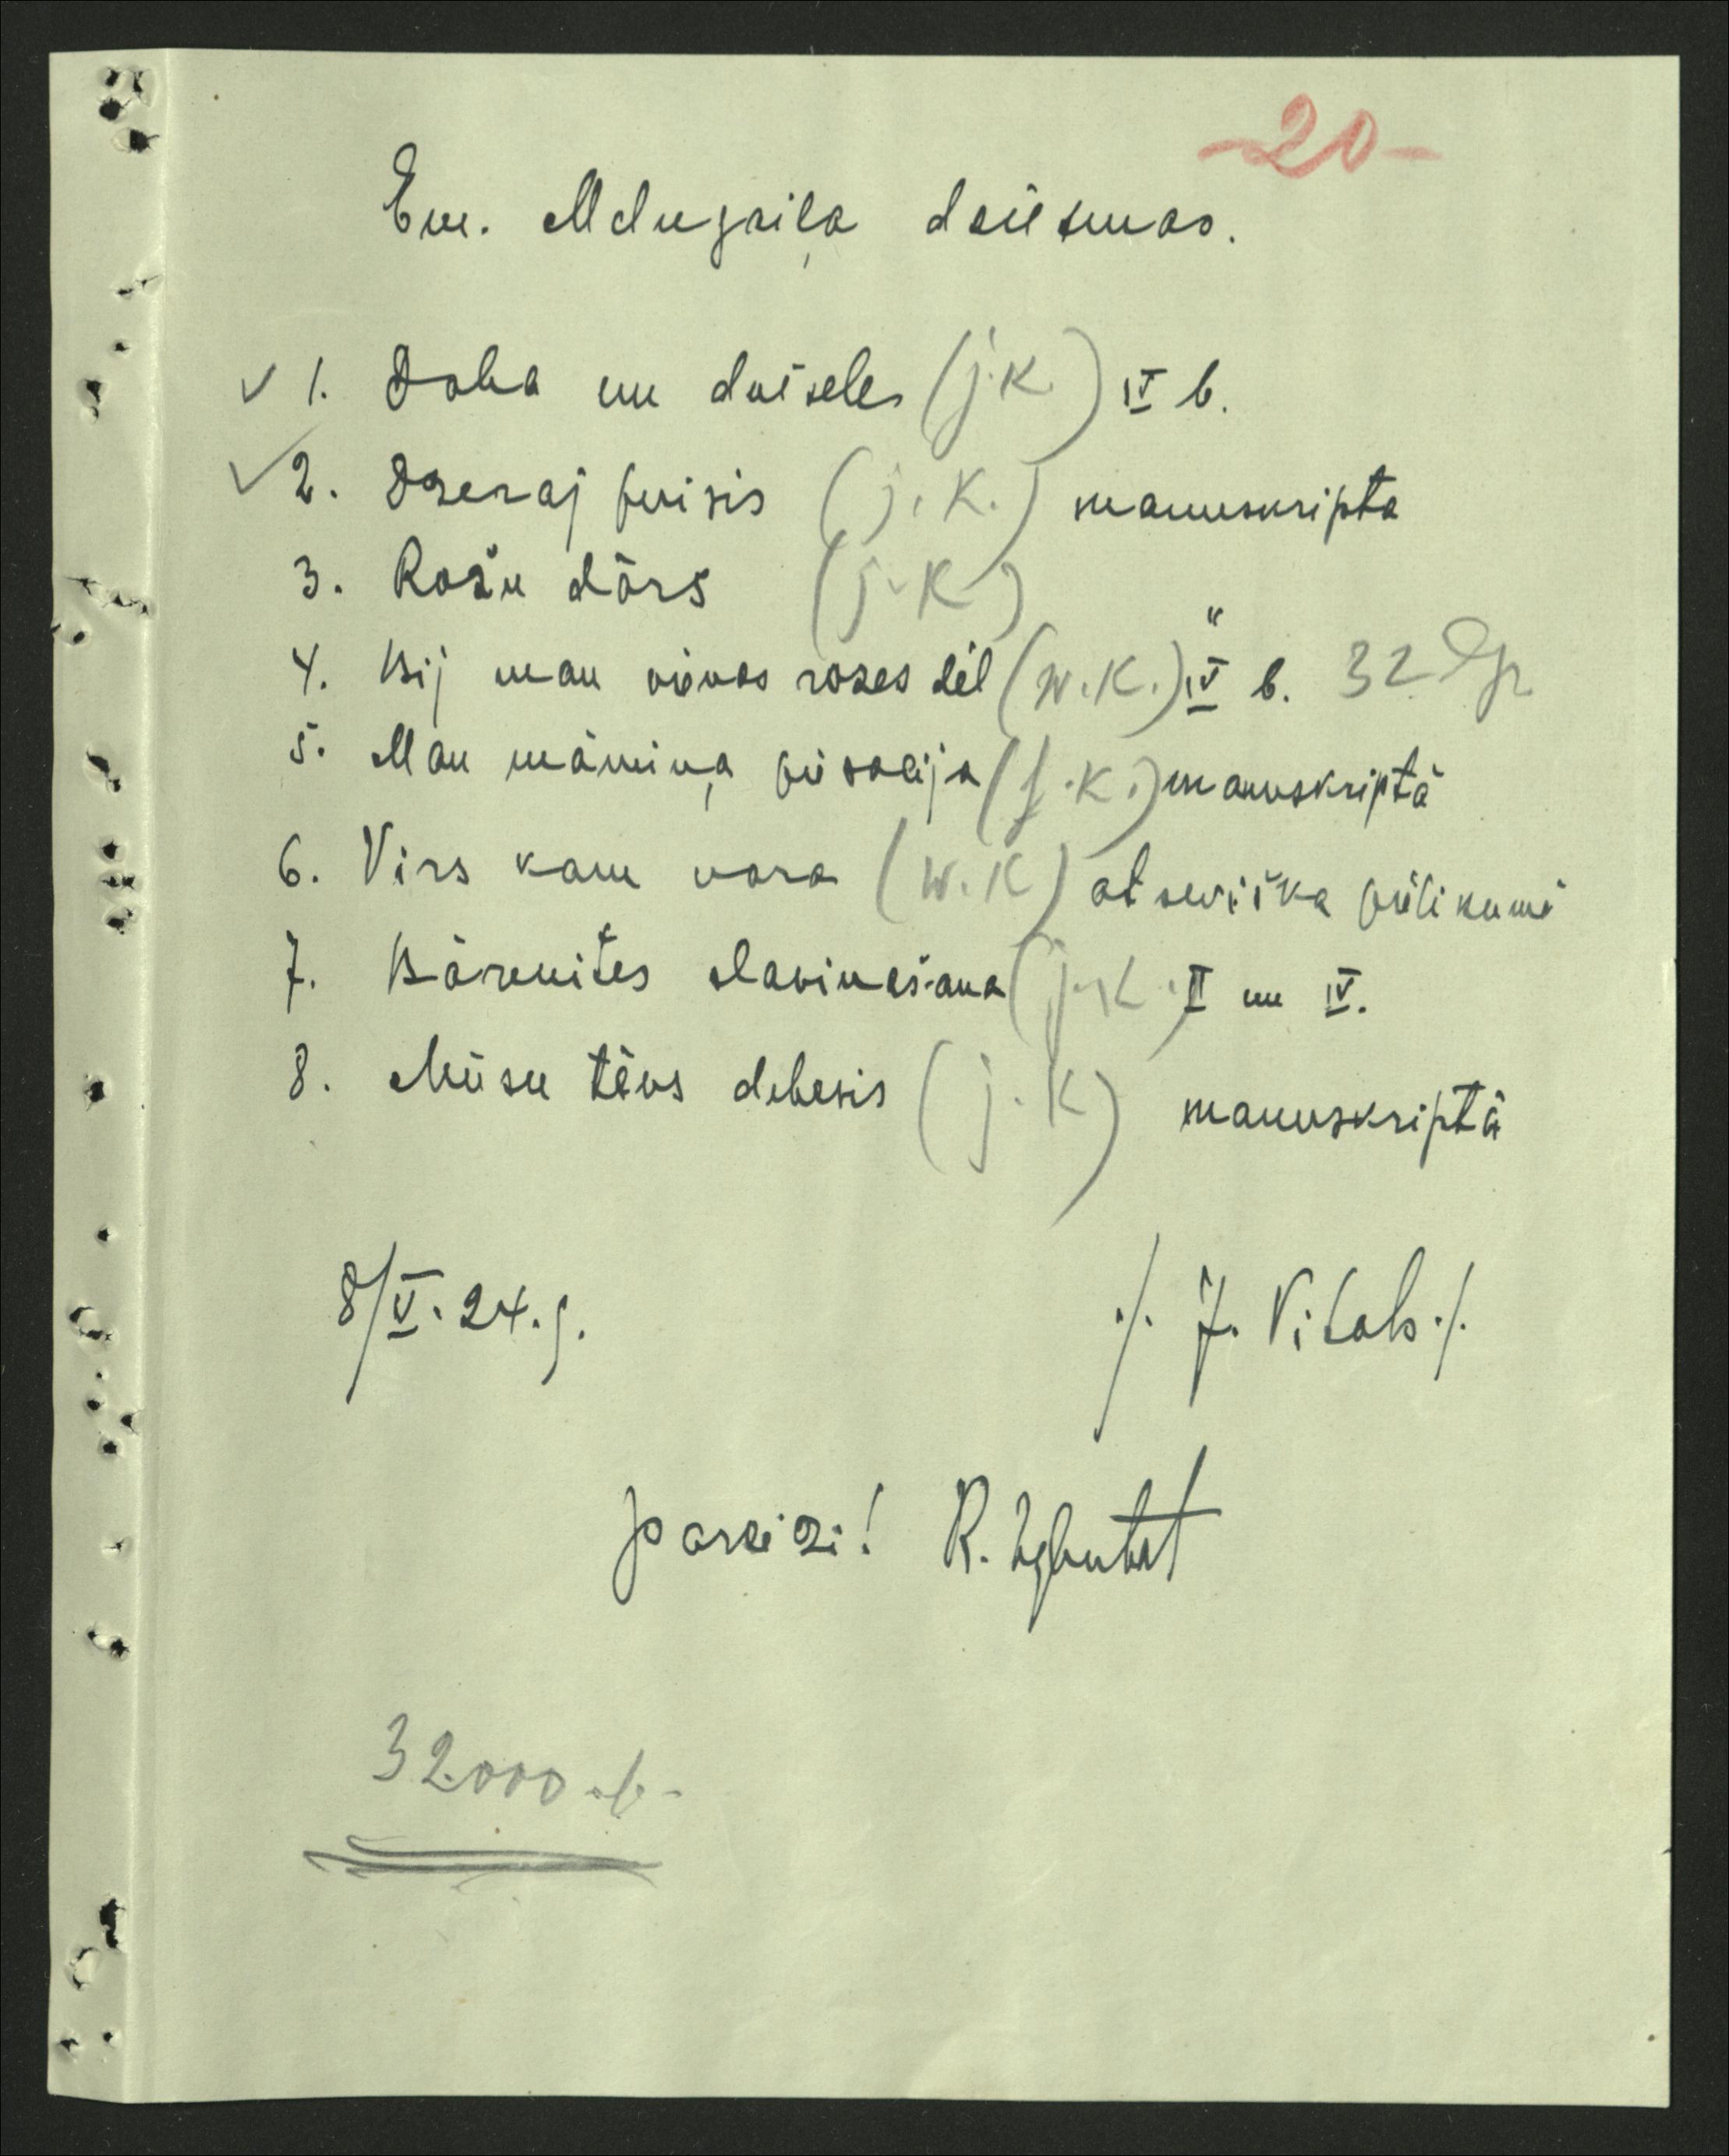 -20-
Em. Melngaiļa dziesmas.
✓ 1. Daba un dvēsele (j.K.) IV b.
✓ 2. Dzeraj puisis (j.K.) manuskripta
3. Rožu dārs (j.K) "
4. Bij man vienas rozes dēl (W.K.) IV b. 32
5. Man māmiņa piesacija (j.K.) manuskriptā
6. Virs kam vara (W.K) atsevišķa pielikumā
7. Bārenītes slavinašana (j.K.) II un IV.
8. Mūsu tēvs debesis (j.K) manuskriptā
8/V. 24. g. ./. J. Vitols ./.
pareizi! R.
32000